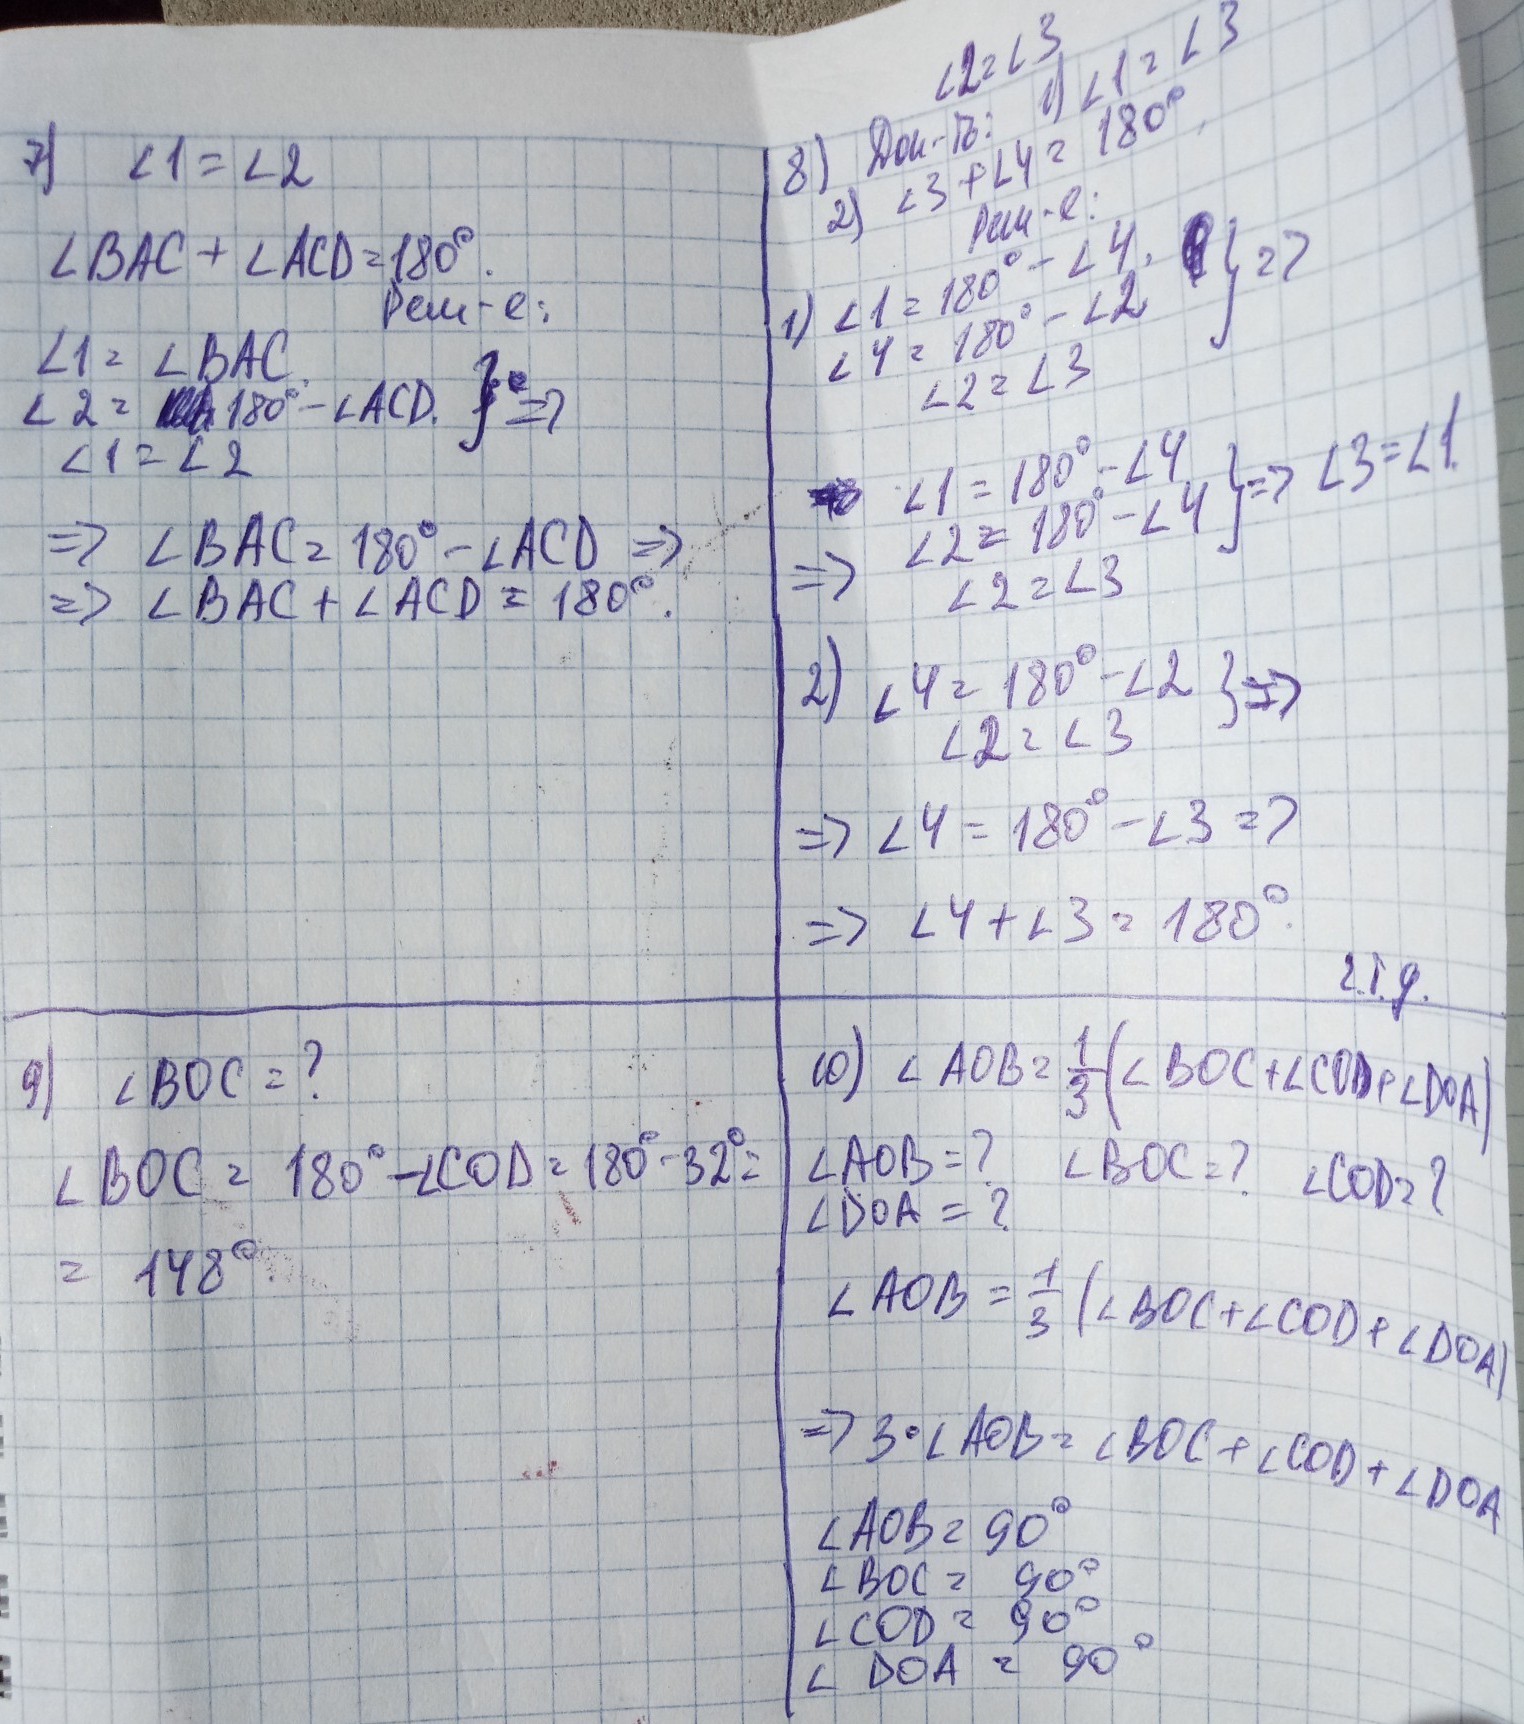 7) ∠1 = ∠2
∠BAC + ∠ACD = 180°.
Реш-е:
∠1 = ∠BAC.
∠2 = 180° - ∠ACD. } =>
∠1 = ∠2
=> ∠BAC = 180° - ∠ACD =>
=> ∠BAC + ∠ACD = 180°.
∠2 = ∠3
8) Док-ть: 1) ∠1 = ∠3
2) ∠3 + ∠4 = 180°.
Реш-е:
1) ∠1 = 180° - ∠4. } =>
∠4 = 180° - ∠2
∠2 = ∠3
∠1 = 180° - ∠4
=> ∠2 = 180° - ∠4 } => ∠3 = ∠1.
∠2 = ∠3
2) ∠4 = 180° - ∠2 } =>
∠2 = ∠3
=> ∠4 = 180° - ∠3 =>
=> ∠4 + ∠3 = 180°.
ч.т.д.
9) ∠BOC = ?
∠BOC = 180° - ∠COD = 180° - 32° =
= 148°.
10) ∠AOB = 1/3 (∠BOC + ∠COD + ∠DOA)
∠AOB = ? ∠BOC = ? ∠COD = ?
∠DOA = ?
∠AOB = 1/3 (∠BOC + ∠COD + ∠DOA)
=> 3 · ∠AOB = ∠BOC + ∠COD + ∠DOA
∠AOB = 90°
∠BOC = 90°
∠COD = 90°
∠DOA = 90°